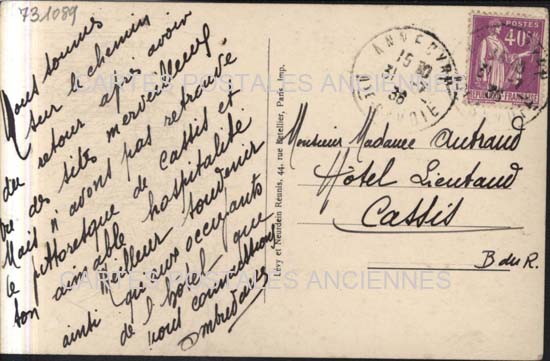 731089
Nous sommes
sur le chemin
du retour après avoir
vu des sites merveilleux
Mais n'avons pas retrouvé
le pittoresque de Cassis et
ton aimable hospitalité
Meilleur souvenir
ainsi qu'aux occupants
de l'hôtel que
nous connaissons
Lévy et Neurdein Réunis, 44, rue Letellier, Paris Imp.
ANNECY
15 30
36
HTE SAVOIE
POSTES
40c
Monsieur Madame Autrand
Hôtel Lieutaud
Cassis
B du R.
CARTES POSTALES ANCIENNES
CARTES POSTALES ANCIENNES